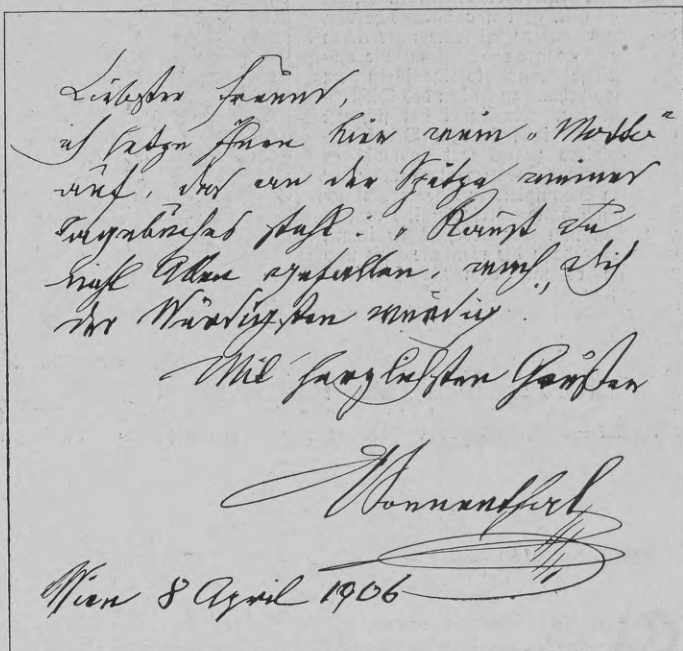 Liebster Freund,
ich setze Ihnen hier mein „Motto“
auf, das an der Spitze meines
Tagebuches steht: „Kannst du
nicht Allen gefallen, mach' dich
der Würdigsten würdig“.
Mit herzlichsten Grüßen
Sonnenthal
Wien 8 April 1906